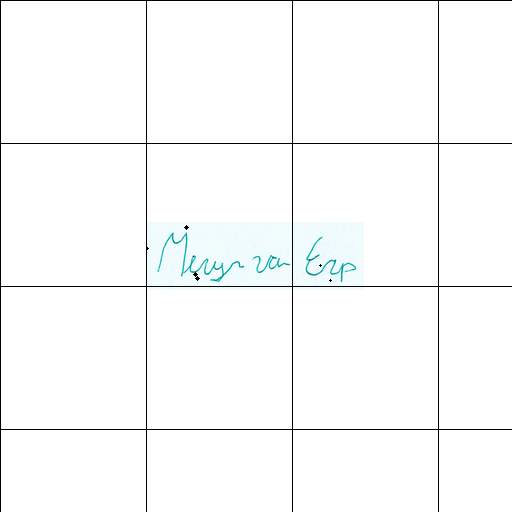 Mervyn van Erp